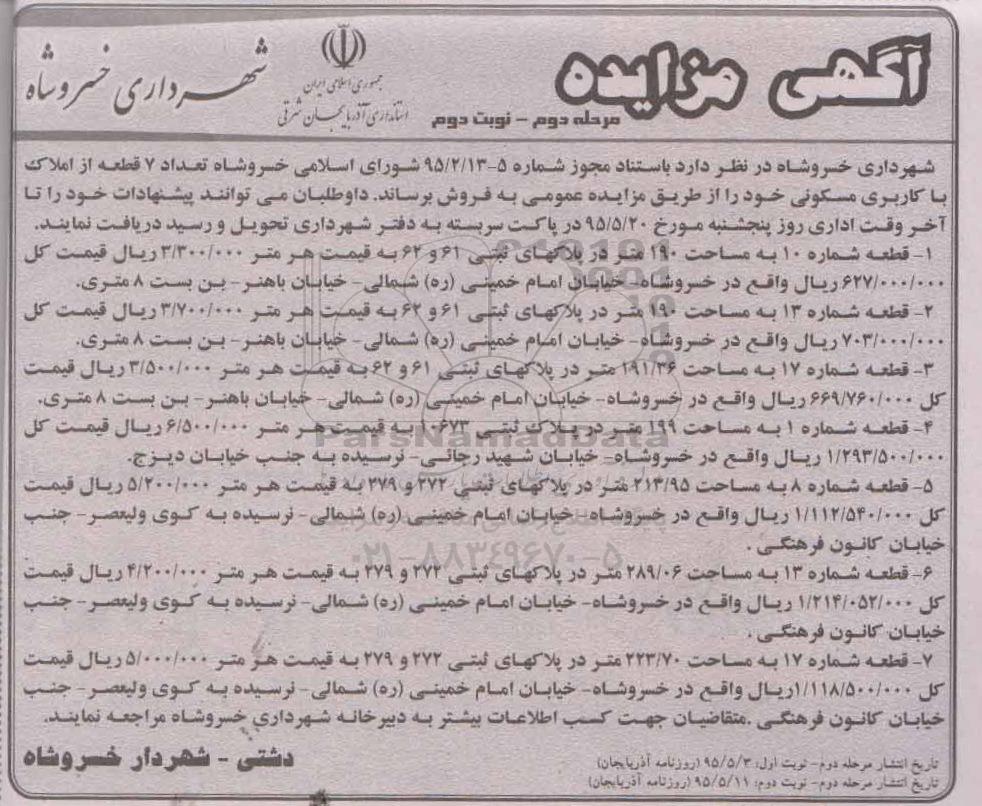 آگهی مزایده
مرحله دوم - نوبت دوم
جمهوری اسلامی ایران
استانداری آذربایجان شرقی
شهرداری خسروشاه
شهرداری خسروشاه در نظر دارد باستناد مجوز شماره ۵-۹۵/۲/۱۳ شورای اسلامی خسروشاه تعداد ۷ قطعه از املاک
با کاربری مسکونی خود را از طریق مزایده عمومی به فروش برساند. داوطلبان می توانند پیشنهادات خود را تا
آخر وقت اداری روز پنجشنبه مورخ ۹۵/۵/۲۰ در پاکت سربسته به دفتر شهرداری تحویل و رسید دریافت نمایند.
۱- قطعه شماره ۱۰ به مساحت ۱۹۰ متر در پلاکهای ثبتی ۶۱ و ۶۲ به قیمت هر متر ۳/۳۰۰/۰۰۰ ریال قیمت کل
۶۲۷/۰۰۰/۰۰۰ ریال واقع در خسروشاه- خیابان امام خمینی (ره) شمالی- خیابان باهنر- بن بست ۸ متری.
۲- قطعه شماره ۱۳ به مساحت ۱۹۰ متر در پلاکهای ثبتی ۶۱ و ۶۲ به قیمت هر متر ۳/۷۰۰/۰۰۰ ریال قیمت کل
۷۰۳/۰۰۰/۰۰۰ ریال واقع در خسروشاه- خیابان امام خمینی (ره) شمالی- خیابان باهنر- بن بست ۸ متری.
۳- قطعه شماره ۱۷ به مساحت ۱۹۱/۳۶ متر در پلاکهای ثبتی ۶۱ و ۶۲ به قیمت هر متر ۳/۵۰۰/۰۰۰ ریال قیمت
کل ۶۶۹/۷۶۰/۰۰۰ ریال واقع در خسروشاه- خیابان امام خمینی (ره) شمالی- خیابان باهنر- بن بست ۸ متری.
۴- قطعه شماره ۱ به مساحت ۱۹۹ متر در پلاک ثبتی ۱۰۶۷۳ به قیمت هر متر ۶/۵۰۰/۰۰۰ ریال قیمت کل
۱/۲۹۳/۵۰۰/۰۰۰ ریال واقع در خسروشاه- خیابان شهید رجائی- نرسیده به جنب خیابان دیزج.
۵- قطعه شماره ۸ به مساحت ۲۱۳/۹۵ متر در پلاکهای ثبتی ۲۷۲ و ۲۷۹ به قیمت هر متر ۵/۲۰۰/۰۰۰ ریال قیمت
کل ۱/۱۱۲/۵۴۰/۰۰۰ ریال واقع در خسروشاه- خیابان امام خمینی (ره) شمالی- نرسیده به کوی ولیعصر- جنب
خیابان کانون فرهنگی .
۶- قطعه شماره ۱۳ به مساحت ۲۸۹/۰۶ متر در پلاکهای ثبتی ۲۷۲ و ۲۷۹ به قیمت هر متر ۴/۲۰۰/۰۰۰ ریال قیمت
کل ۱/۲۱۴/۰۵۲/۰۰۰ ریال واقع در خسروشاه- خیابان امام خمینی (ره) شمالی- نرسیده به کوی ولیعصر- جنب
خیابان کانون فرهنگی .
۷- قطعه شماره ۱۷ به مساحت ۲۲۳/۷۰ متر در پلاکهای ثبتی ۲۷۲ و ۲۷۹ به قیمت هر متر ۵/۰۰۰/۰۰۰ ریال قیمت
کل ۱/۱۱۸/۵۰۰/۰۰۰ریال واقع در خسروشاه- خیابان امام خمینی (ره) شمالی- نرسیده به کوی ولیعصر- جنب
خیابان کانون فرهنگی .متقاضیان جهت کسب اطلاعات بیشتر به دبیرخانه شهرداری خسروشاه مراجعه نمایند.
دشتی - شهردار خسروشاه
تاریخ انتشار مرحله دوم- نوبت اول: ۹۵/۵/۳ (روزنامه آذربایجان)
تاریخ انتشار مرحله دوم- نوبت دوم: ۹۵/۵/۱۱ (روزنامه آذربایجان)
ParsNamadData
۰۲۱-۸۸۳۴۹۶۷۰-۵